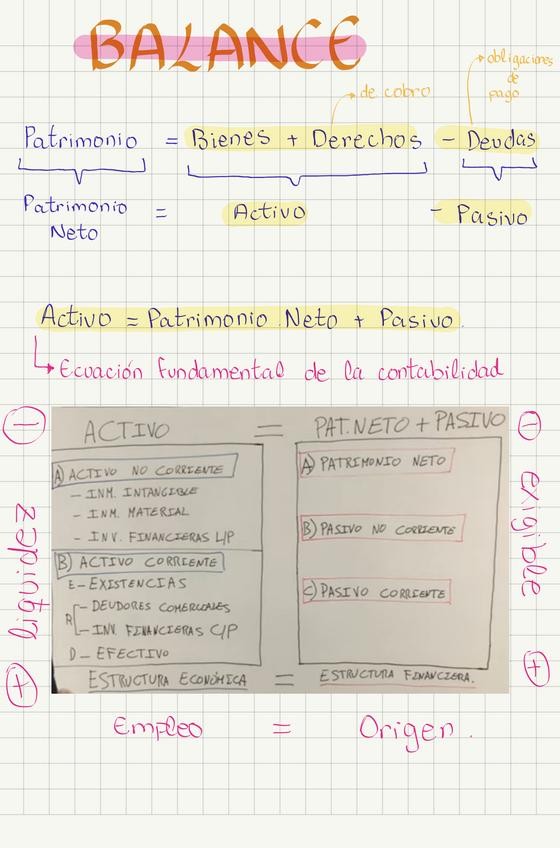 BALANCE
obligaciones
de
pago
de cobro
Patrimonio = Bienes + Derechos - Deudas
Patrimonio
Neto
= Activo - Pasivo
Activo = Patrimonio Neto + Pasivo.
Ecuación fundamental de la contabilidad
ACTIVO = PAT. NETO + PASIVO
A) ACTIVO NO CORRIENTE
- INM. INTANGIBLE
- INM. MATERIAL
- INV. FINANCIERAS L/P
B) ACTIVO CORRIENTE
E - EXISTENCIAS
R - DEUDORES COMERCIALES
- INV. FINANCIERAS C/P
D - EFECTIVO
A) PATRIMONIO NETO
B) PASIVO NO CORRIENTE
C) PASIVO CORRIENTE
ESTRUCTURA ECONÓMICA = ESTRUCTURA FINANCIERA.
- liquidez +
- exigible +
Empleo = Origen.